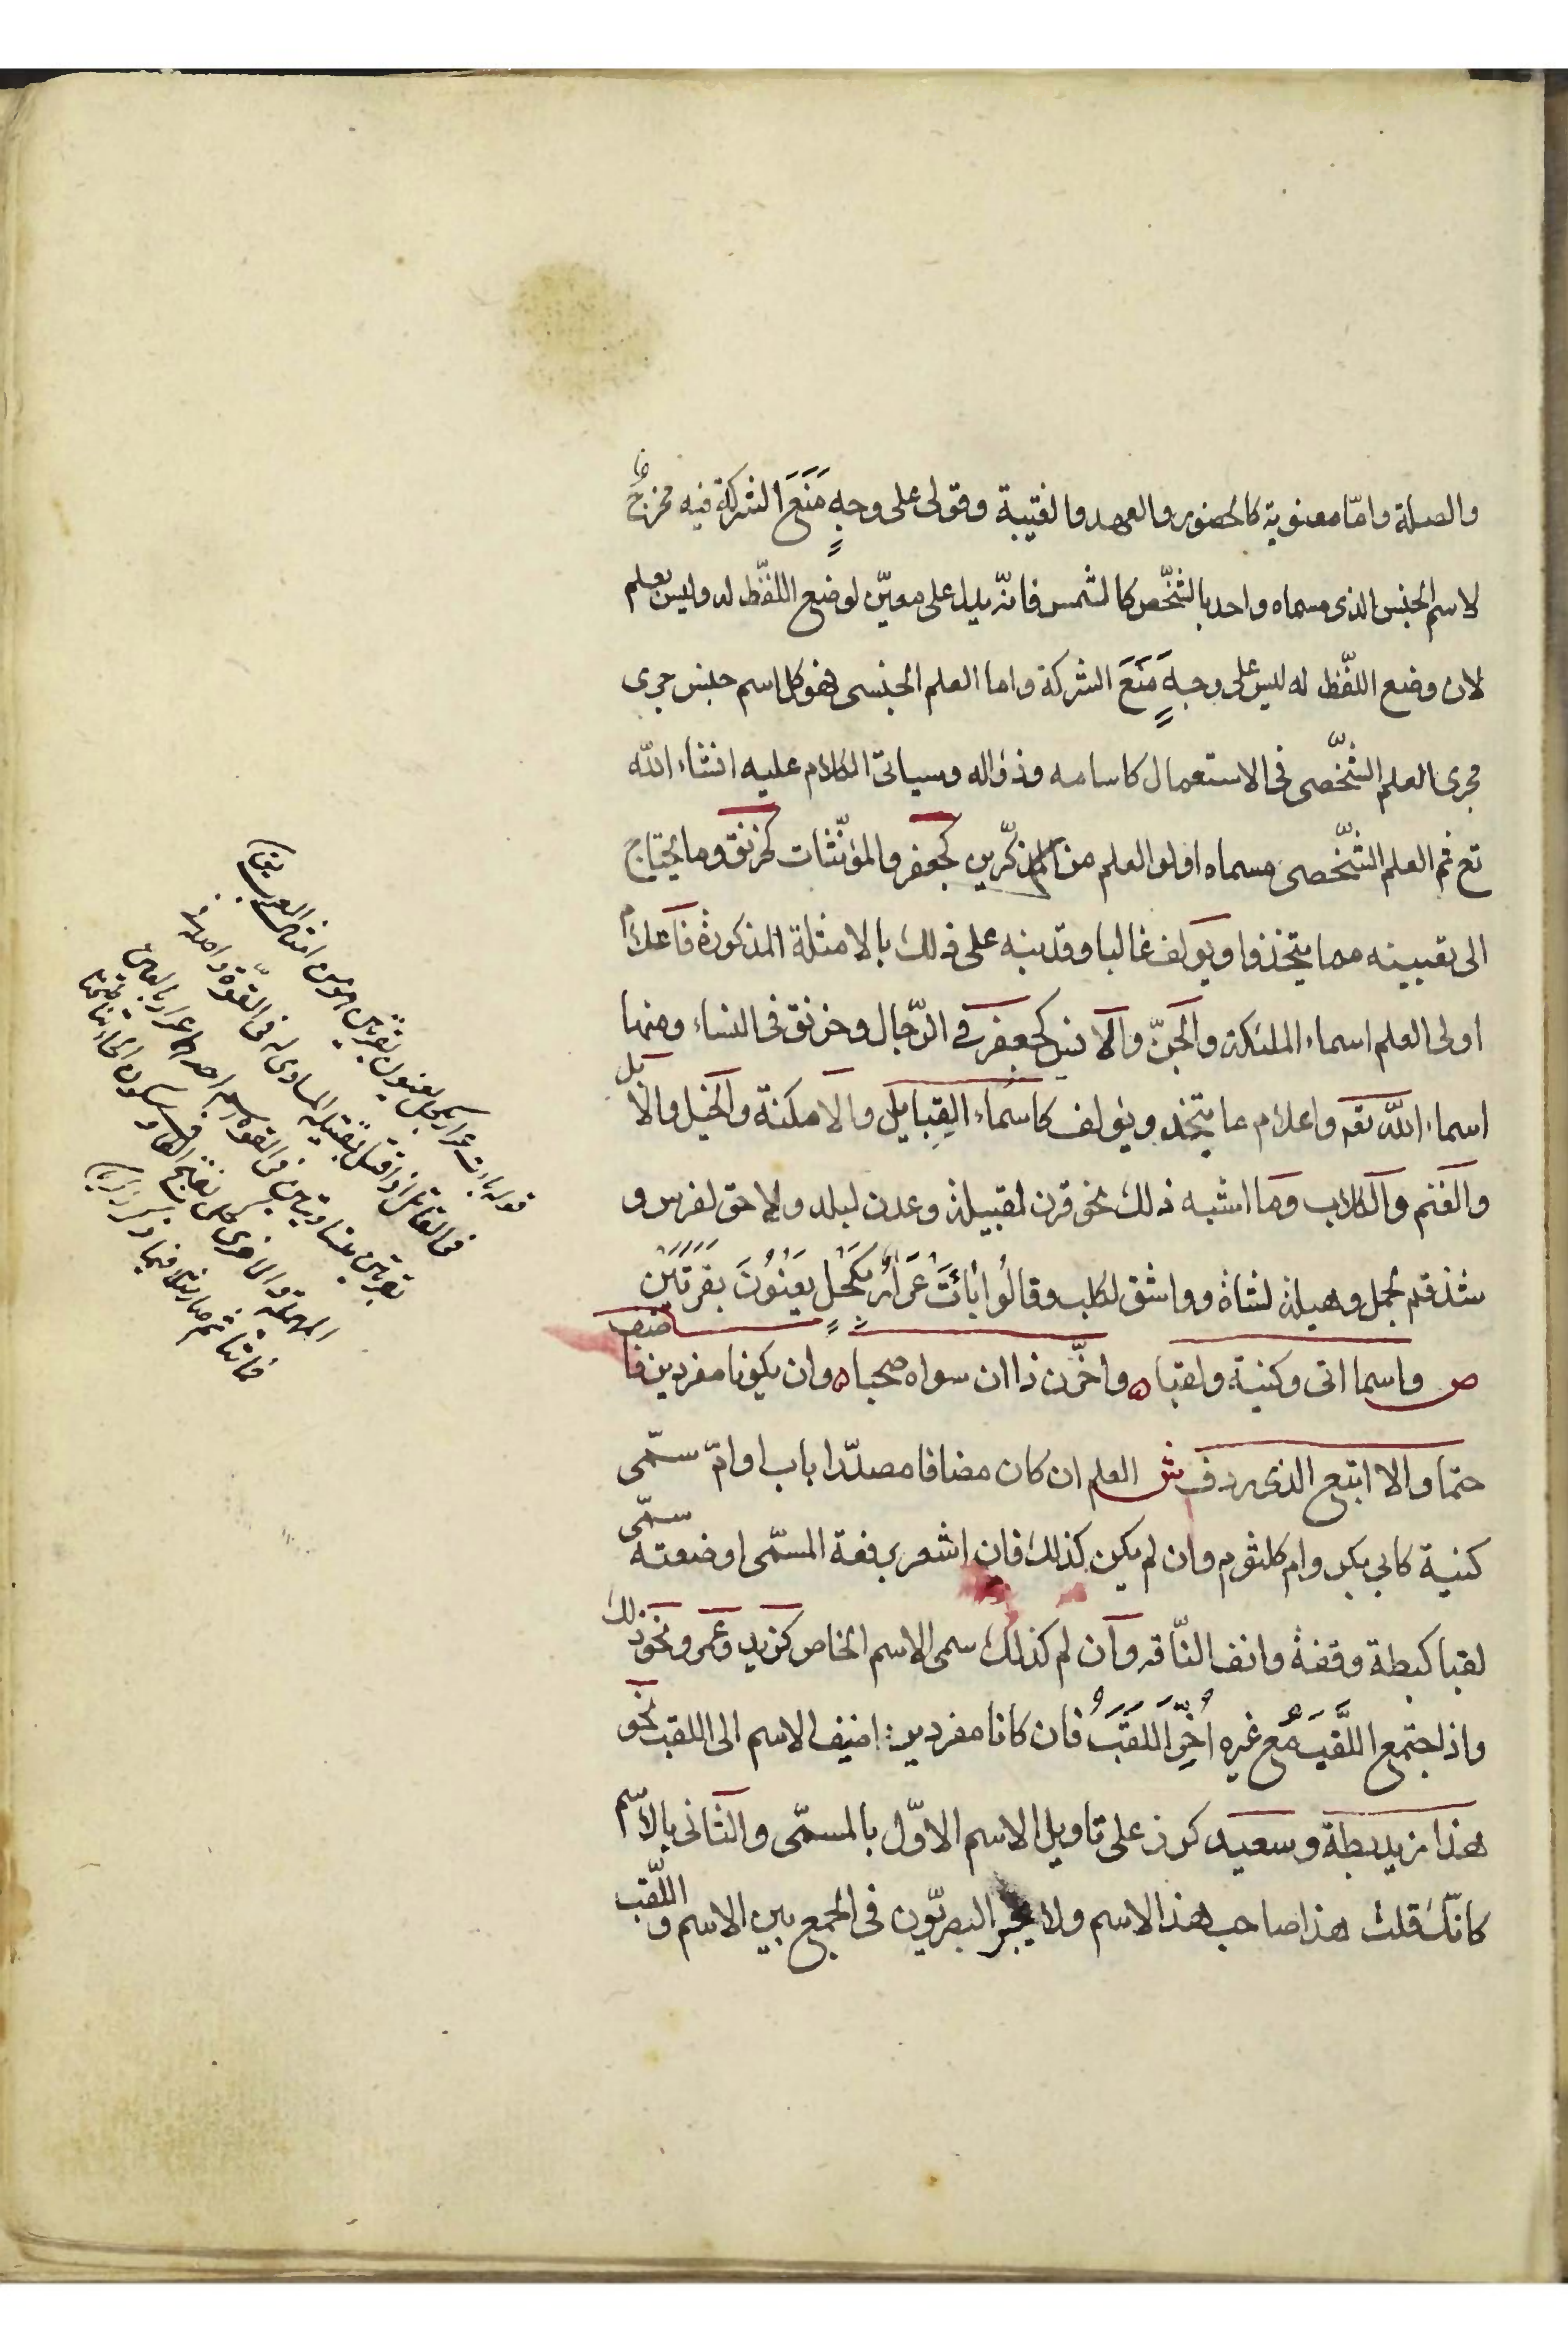 والصلة وامّا معنوية كالحضور والعهد والغيبة وقولى على وجهٍ مَنَعَ الشركة فيه مخرجٌ
لاسم الجنس الذى مسماه واحد بالشّخص كالشمس فانّه يدل على معيّن لوضع اللفّظ له وليس بعلم
لان وضع اللفّظ له ليس على وجهٍ مَنَعَ الشركة واما العلم الجنسى فهو كل اسم جنس جرى
مجرى العلم الشّخصى فى الاستعمال كاسامه وذؤاله وسياتى الكلام عليه انشاء الله
تع ثم العلم الشّخصى مسماه اولوا العلم من المذكّرين كجعفر والمؤنّثات كخرنق وما يحتاج
الى تعيينه مما يتخذ ويولف غالبا وقد نبه على ذلك بالامثلة المذكورة فاعلام
اولى العلم اسماء الملئكة والجنّ والانس كجعفر فى الرّجال وخرنق فى النساء ومنها
اسماء الله تعم واعلام ما يتخد ويولف كاسماء القِبايل والامكنة والخيل والابل
والغنم والكلاب وما اشبه ذلك نحو قرن لقبيلة وعدن لبلد ولاحق لفرس و
شذقم لجمل وهيلة لشاة وواشق لكلب وقالُوا بَائَتْ عَرَارُ بِكَحْلٍ يَعْنُونَ بقَرَتَيْن
ص واسما اتى وكنية ولقبا ٥ واخّرن ذا ان سواه صحبا ٥ وان يكونا مفردين فاضف
حتما والا اتبع الذى ردف ش العلم ان كان مضافا مصدّرا باب او امّ سمّى
كنية كابي بكر وام كلثوم وان لم يكن كذلك فان اشعر برفعة المسمّى او ضعته سمّى
لقبا كبطة وقفة وانف النّاقه وان لم كذلك سمى الاسم الخاص كزيد وعمرو ونحو ذلك
واذا جتمع اللّقب مع غيره اُخِّرَ اللَقَبُ فان كانا مفردين اضيف الاسم الى اللقب نحو
هذا زيد بطة وسعيد كرز على تاويل الاسم الاوّل بالمسمّى والثانى بالاسم
كانّك قلت هذا صاحب هذا الاسم ولا يجز البصريّون فى الجمع بين الاسم واللّقب
قوله باءت عرار بكحل يعنون بقرتين هو من امثال العرب يقا
فى القاتل اذا قتل بقتيله المساوى له فى القوّة واصله
بقرتين
المهملة والاخرى كحل بفتح الكاف وسكون الحاء